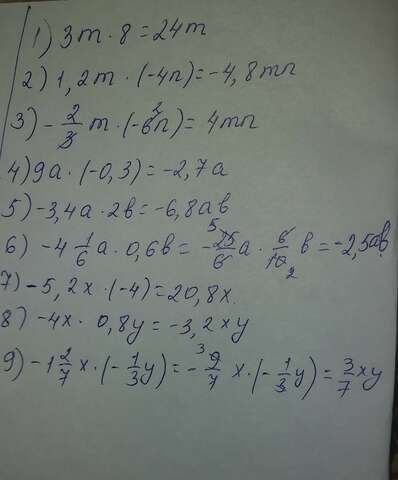 1) 3m · 8 = 24m
2) 1,2m · (-4n) = -4,8mn
3) -2/3 m · (-6 2 n) = 4mn
4) 9a · (-0,3) = -2,7a
5) -3,4a · 2в = -6,8aв
6) -4 1/6 a · 0,6в = - 5 25/6 a · 6/10 2 в = -2,5aв
7) -5,2x · (-4) = 20,8x.
8) -4x · 0,8y = -3,2xy
9) -1 2/7 x · (-1/3 y) = - 3 9/7 x · (-1/3 y) = 3/7 xy